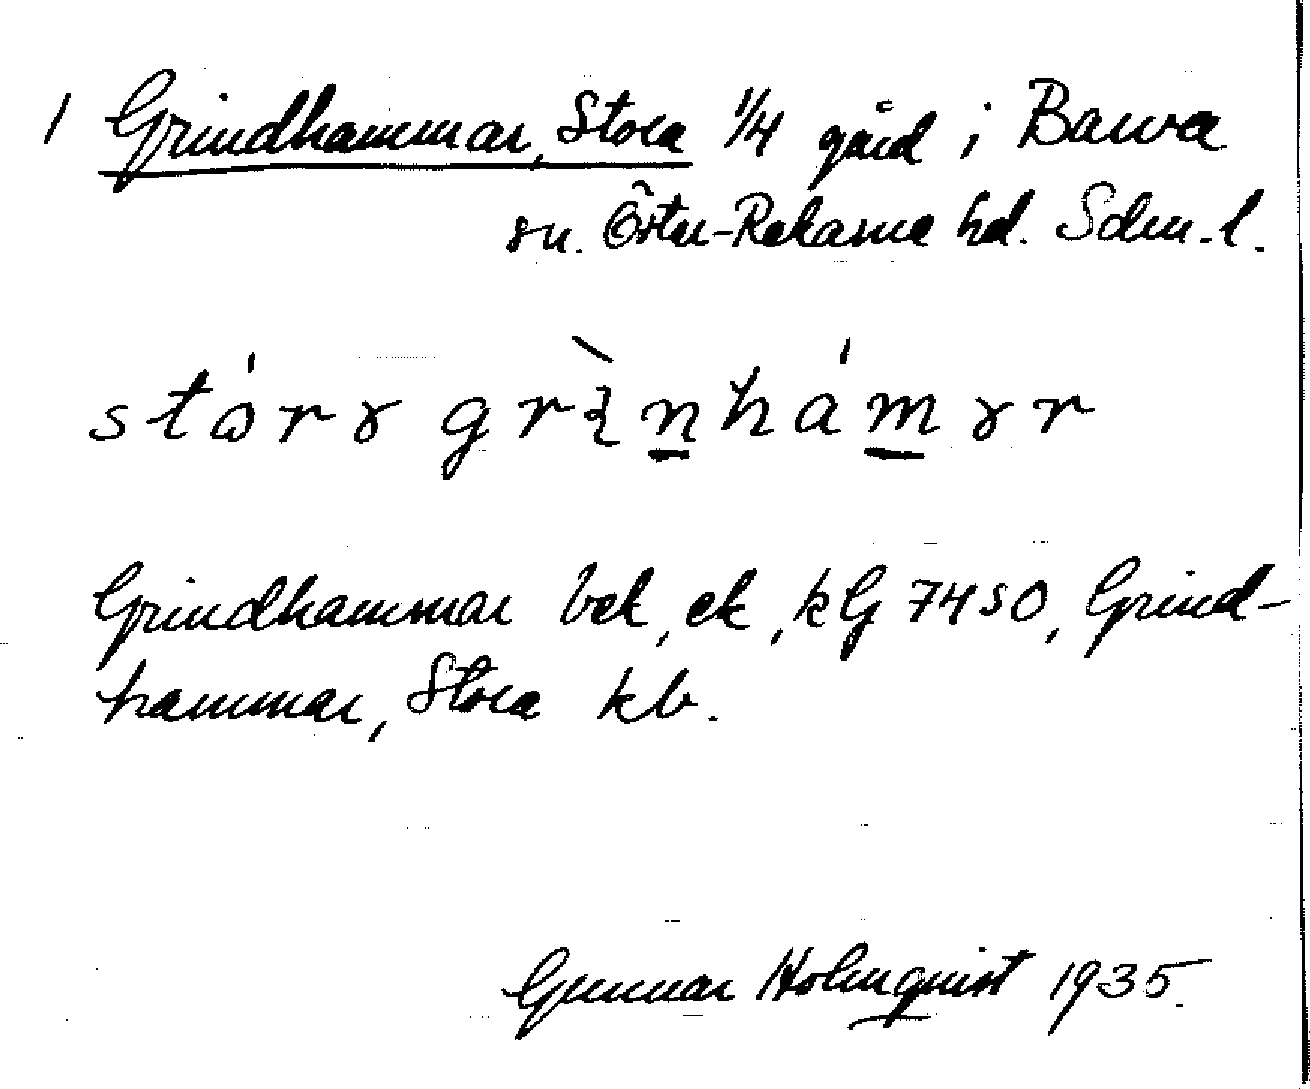 1 Grindhammar, Stora 1/4 gård i Barva
sn. Öster-Rekarne hd. Sdm. l.
stórɤ grìnhámɤr
Grindhammar bek, ek, kG 7450, Grind-
hammar, Stora kb.
Gunnar Holmquist 1935.